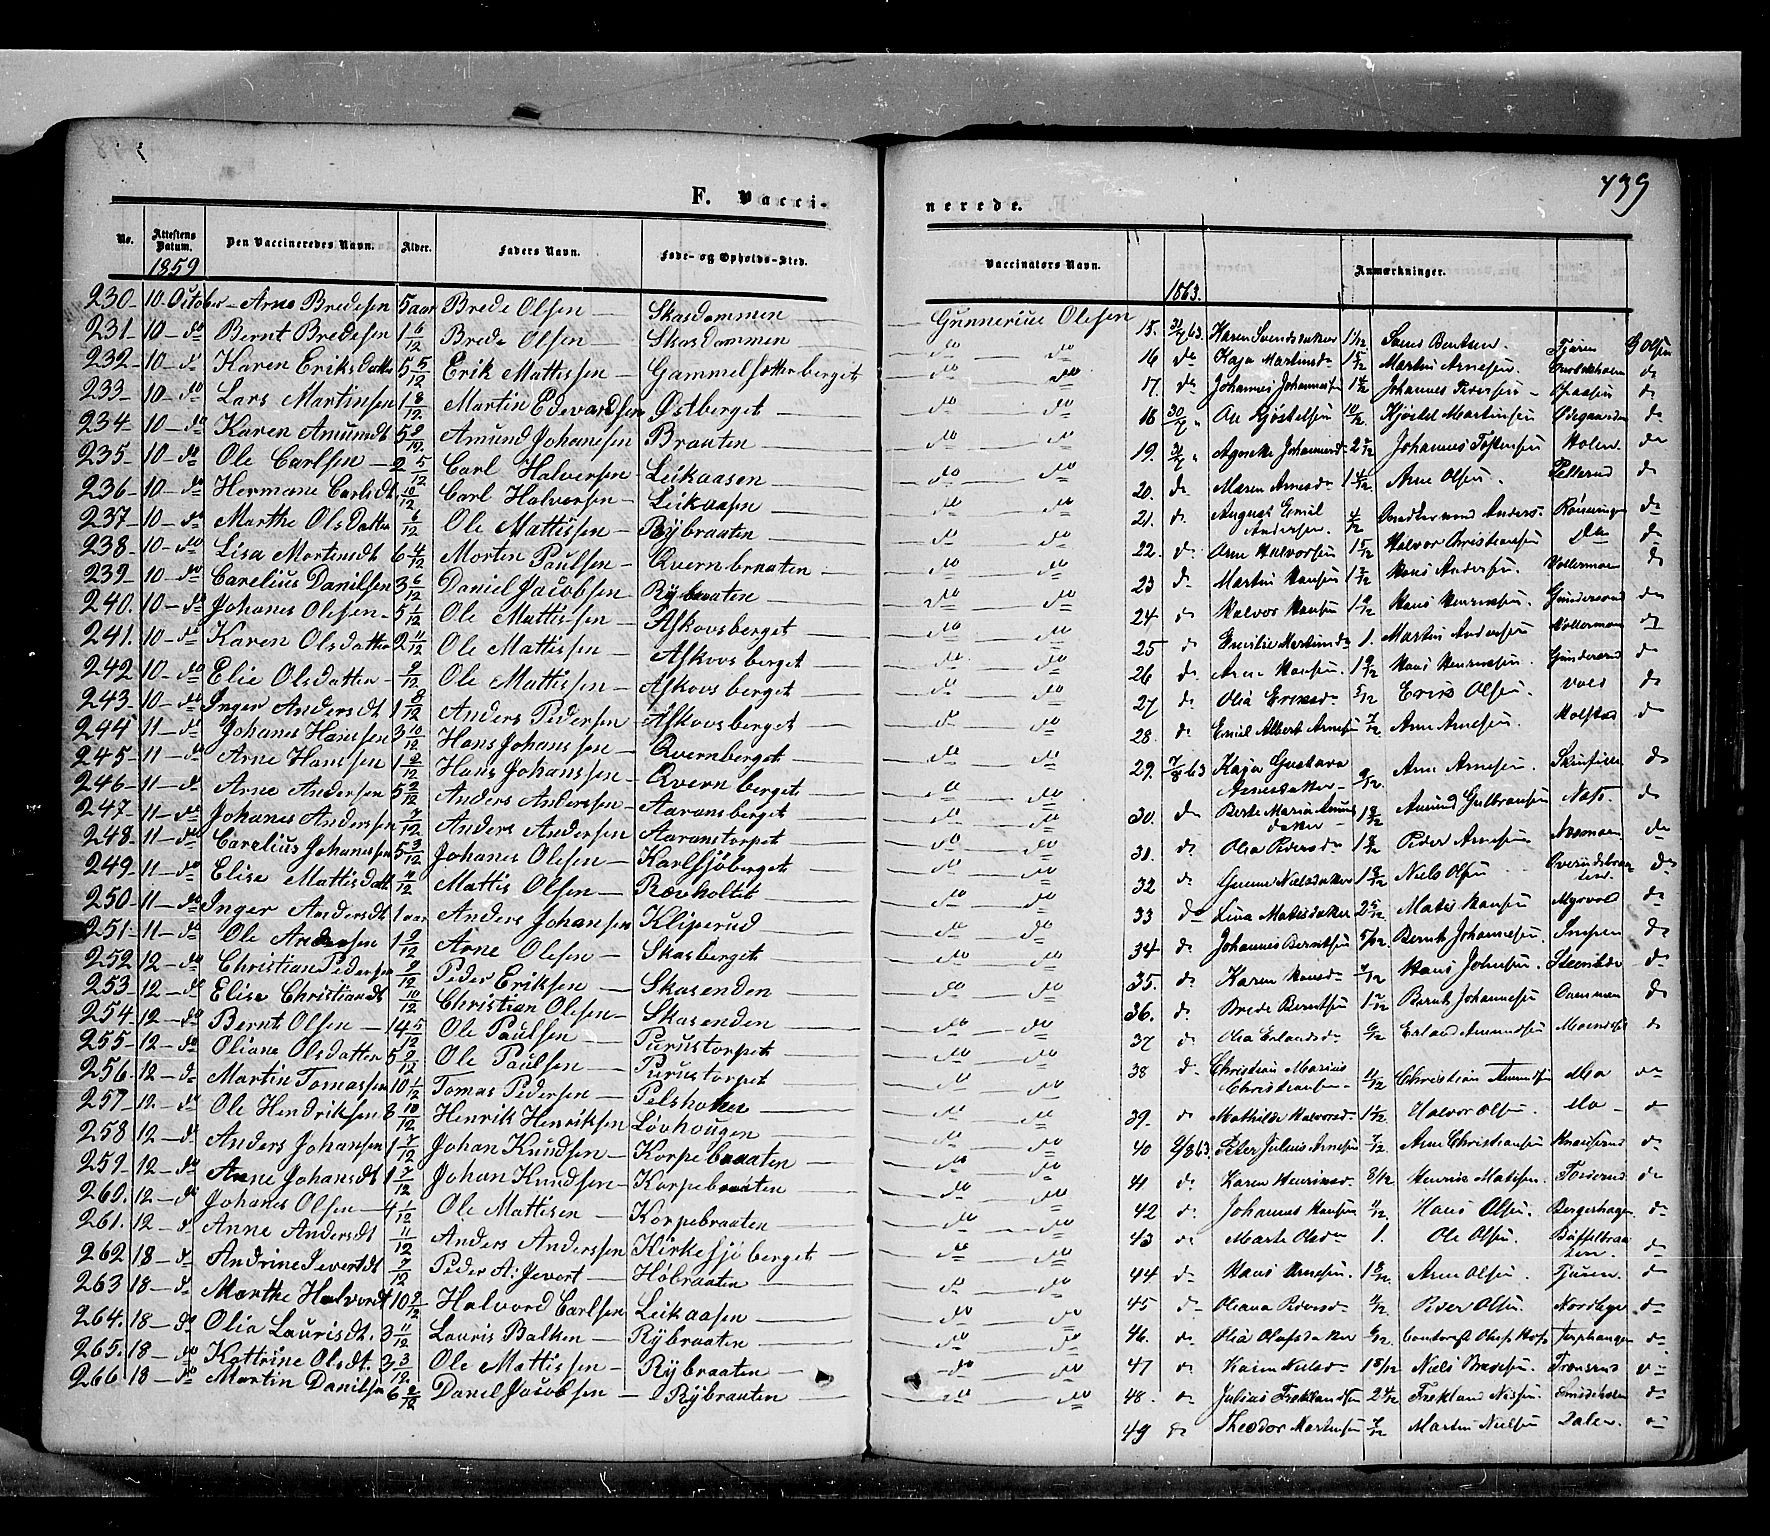 439
F. Vacci-
nerede.
No. Attestens Datum. Den Vaccineredes Navn. Alder. Faders Navn. Føde- og Opholds-Sted.
Vaccinators Navn. Anmærkninger.
1859
1863.
230 - 10 October - Arne Bredesen 5 aar Brede Olsen - Skasdammen - Gunnerius Olesen
231 - 10 - do Bernt Bredesen 1 6/12 Brede Olsen - Skasdammen - do do
232 - 10 - do Karen Eriksdatter 5 5/12 Erik Mattissen - Gammelsætterberget do do
233 - 10 - do Lars Martinsen 1 8/12 Martin Edevardsen Østberget - do do
234 - 10 - do Karen Amundt 5 9/12 Amund Johanesen Braaten - do do
235 - 10 - do Ole Carlsen - 2 5/12 Carl Halversen - Leikaasen - do do
236 - 10 - do Hermane Carlsdt 10/12 Carl Halversen - Leikaasen - do do
237 - 10 - do Marthe Olsdatter 6/12 Ole Mattissen - Rÿbraaten - do do
238 - 10 - do Lisa Mortensdt 6 4/12 Morten Paulsen - Qvernbraaten - do do
239 - 10 - do Carelius Danilsen 3 6/12 Daniel Jacobsen Rÿbraaten - do do
240. 10 - do Johanes Olesen - 5 1/12 Ole Mattissen - Afkovsberget - do do
241. 10 - do Karen Olsdatter 2 11/12 Ole Mattissen - Afkovsberget - do do
242 10 - do Elie Olsdatter - 9/12 Ole Mattissen - Afkovsberget - do do
243. 10 - do Inger Andersdt 1 8/12 Anders Pedersen Afkovsberget - do do
244 11 - do Johanes Hanssen 3 10/12 Hans Johanssen - Qvernberget - do do
245 - 11 - do Arne Hanssen 1 8/12 Hans Johanssen - Qvernberget - do do
246 - 11 - do Arne Andersen 5 2/12 Anders Anderssen - Aaransberget - do do
247 - 11 - do Johanes Anderssen 7/12 Anders Andersen - Aaranstorpet - do do
248 - 11 - do Carelius Johanssen 5 3/12 Johanes Olesen - Karlsjöberget - do do
249 - 11 - do Elise Mattisdatt 11/12 Mattis Olsen - Rævholtet - do do
250 - 11 - do Inger Andersdt 1 aar Anders Johansen - Kliperud - do do
251 - 11 - do Ole Andersen 1 9/12 Arne Olesen - Skasberget - do do
252 12 - do Christian Pedersen 9/12 Peder Eriksen - Skasenden do do
253 - 12 - do Elise Christiandt 10/12 Christian Olesen - Skasenden - do do
254 - 12 - do Bernt Olsen - 14 5/12 Ole Paulsen - Purustorpet do do
255 - 12 - do Oliane Olsdatter 5 9/12 Ole Paulsen - Purustorpet - do do
256. 12 - do Martin Tomassen 10 1/12 Tomas Pedersen - Pelsholen - do do
257 - 12 - do Ole Hendriksen 8 10/12 Henrik Henriksen Lövhougen - do do
258 12 - do Anders Johansen 1 7/12 Johan Knudsen - Korpebraaten - do do
259. 12 - do Anne Johansdt 1 7/12 Johan Knudsen - Korpebraaten - do do
260. 12 - do Johanes Olsen - 4 1/12 Ole Mattisen - Korpebraaten - do do
261. 12 - do Anne Andersdt 11/12 Anders Anderssen Kirkesjöberget - do do
262 18 - do Andrine Jevertdt 7/12 Peder A: Jevert - Höbraaten - do do
263 18 - do Marthe Halvordt 10 2/12 Halvord Carlsen Leikaasen - do do
264. 18 - do Olia Laurisdt. 3 11/12 Lauris Balken - Rÿbraaten - do do
265. 18 - do Kattrine Olsdt. 3 3/12 Ole Mattissen - Rÿbraaten - do do
266 18 - do Martin Danilsen 6 2/12 Danel Jacobsen - Rÿbraaten - do do
15. 31/7 63 Karen Svendsdatter 1 1/12 Bentsen. Tjuren G Olsen
16 do Kaja Martinsd 1 5/12 Martin Arnesen. do
17. do Johannes Johannes 1 4/12 Johannes Pedersen - do
18 30/7 Ole Kjöstelsen 10/12 Kjöstel Martinsen Ødegaarden do
19. 31/7 Agnethe Johannesd 2 Johannes Tostensen Holen do
20. do Maren Arnesd 1 Arne Olsen. Pellerud do
21. do August Emil Andersen. 4/12 Anders Rönningen do
22. do Arne Halvorsen 1 5/12 Halvor Christiansen do do
23 do Martin Hansen 1 Hans Andersen. Vollermoen do
24 do Halvor Hansen 1 9/12 Hans Henriksen. Gundersrud do
25 do Emilie Martinsd 1. Martin Andersen Vollermoen do
26 do Arne Hansen 1 9/12 Hans Henriksen. Gundersrud do
27 do Olia Eriksd 5/12 Erik Olsen. Vold do
28. do Emil Albert Arnesen 7/12 Arne Arnesen. Molstad do
29. 7/8 63 Kaja Gustava Arnesdatter 9/12 Arne Arnesen. do
30. do Berte Maria Amunds datter 1 8/12 Amund Gulbransen Næs. do
31. do Olia Pedersd 1 8/12 Peder Arnesen do
32 do Gunne Nielsdatter 1 8/12 Niels Olsen do
33 do Lina Matisdatter 2 5/12 Matis Hansen Myrvol do
34 do Johannes Berntsen 5/12 Bernt Johannesen. do
35. do Karen Hansd 7/12 Hans Johnsen. do
36. do Brede Berntsen 1 Bernt Johannesen do
37 do Olia Erlandsd 6/12 Erland Amundsen do
38 do Christian Marius Christiansen - 11/12 Christian Amundsen Mo do
39. do Mathilde Halvorsd 1 Halvor Olsen. Mo - do
40 9/8 63 Peter Julius Arnesen 7/12 Arne Christiansen do
41 do Karen Henriksd 8/12 Henrik Matisen. do
42 do Johannes Hansen 11/12 Hans Olsen. Bergerhagen. do
43 do Marte Olsd 1. Ole Olsen. do
44 do Hans Arnesen. 1 8/12 Arne Olsen. Tjuren. do
45 do Oliana Pedersd 11/12 Peder Olsen. do
46. do Olia Olafsdatter 6/12 do
47 do Karen Nielsd 1 8/12 Niels Bredesen. do
48. do Julius 2 4/12 do
49 do Theodor Martinsen 7/12 Martin Nielsen Dalen do